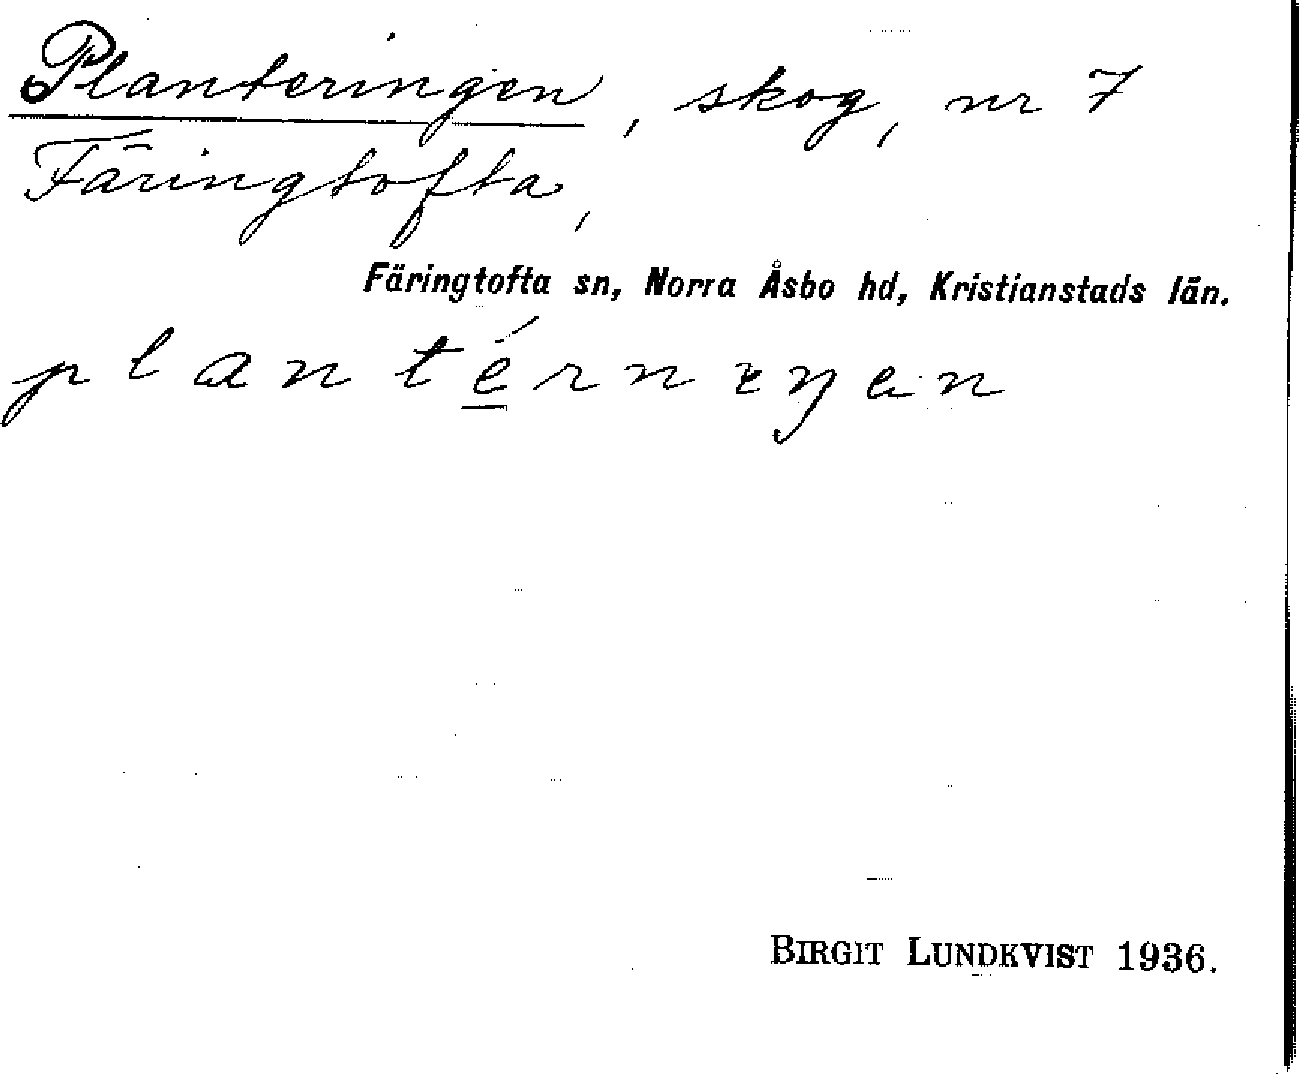 Planteringen, skog, nr 7
Färingtofta,
Färingtofta sn, Norra Åsbo hd, Kristianstads län.
BIRGIT LUNDKVIST 1936.